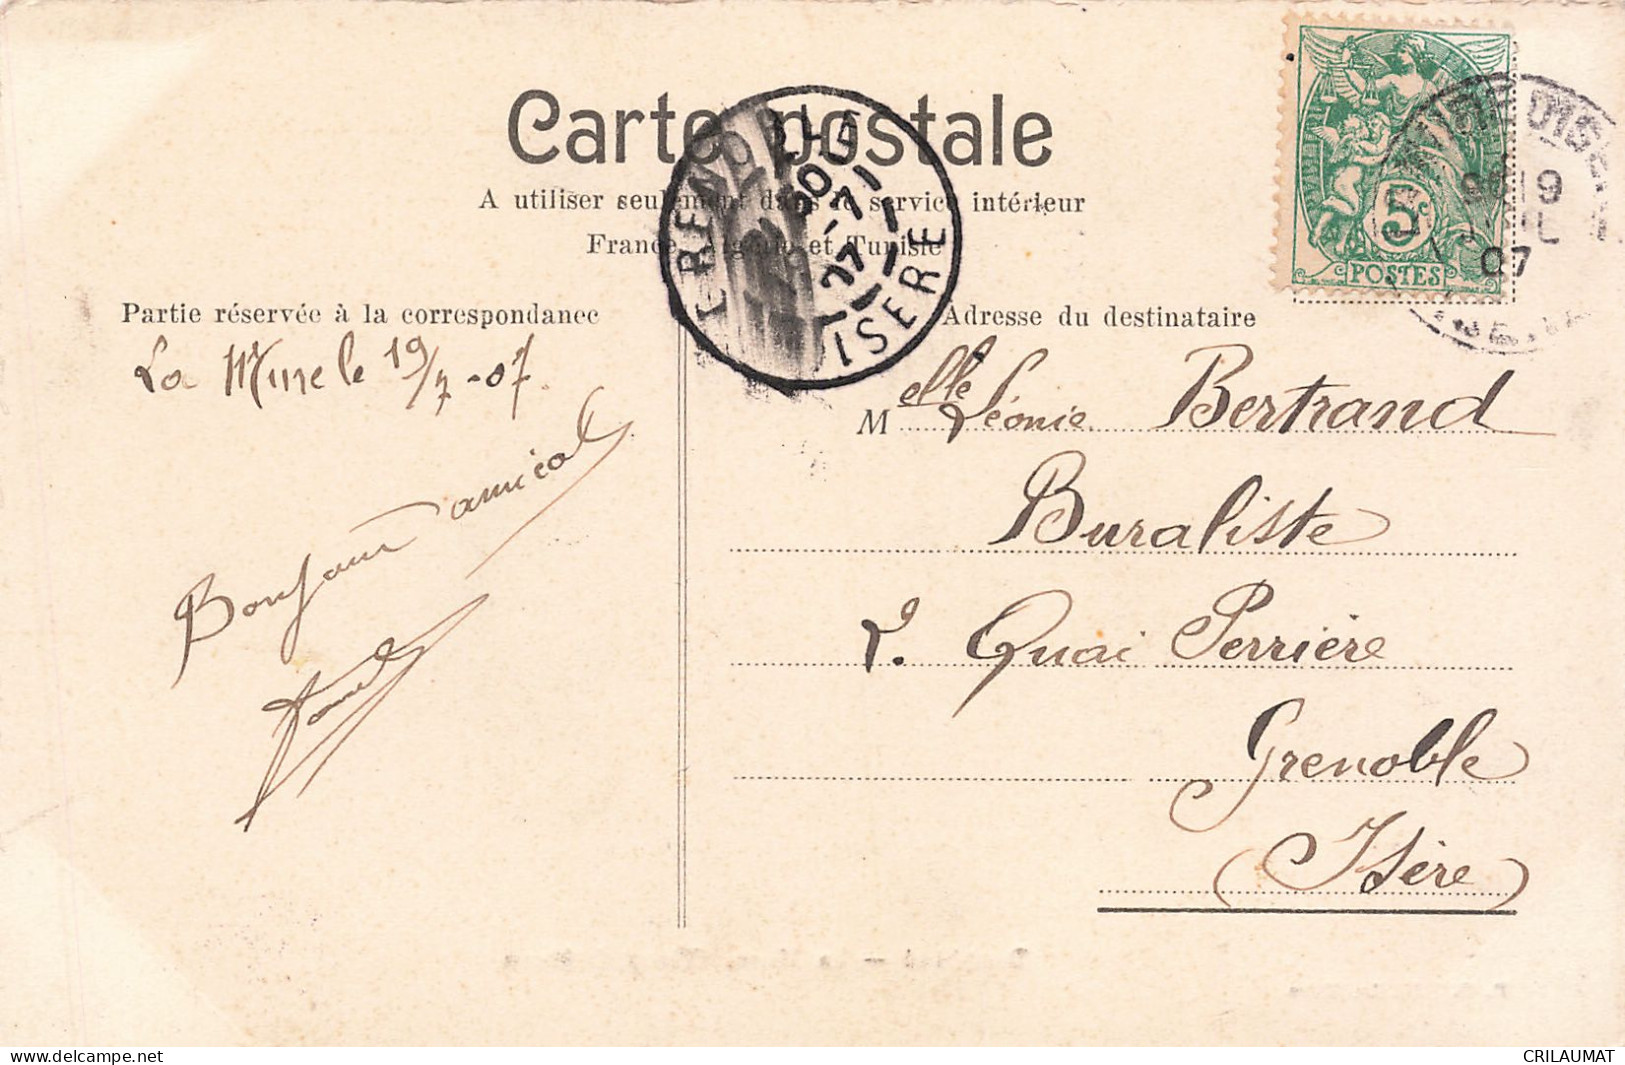 Carte postale
A utiliser seulement dans le service intérieur
France, Algérie et Tunisie
Partie réservée à la correspondance
Adresse du destinataire
La Mure le 19/7-07.
Bonjour amical
Melle Léonie Bertrand
Buraliste
2. Quai Perrière
Grenoble
(Isère)
GRENOBLE
ISERE
5c
POSTES
19
07
delcampe.net
CRILAUMAT